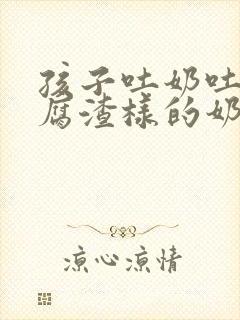 孩子吐奶吐
腐渣样的奶
凉心凉情